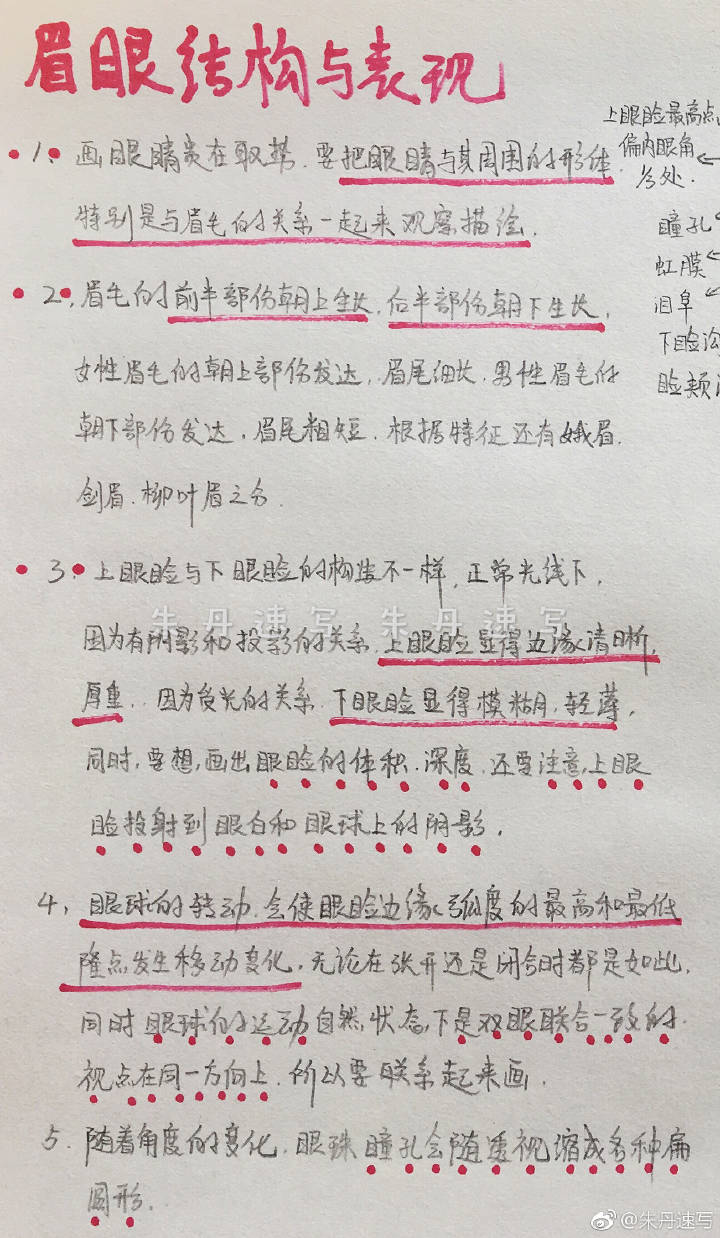 眉眼结构与表现
上眼睑最高点
偏内眼角
1、画眼睛贵在取势.要把眼睛与其周围的形体.
处.
特别是与眉毛的关系一起来观察描绘.
瞳孔
虹膜
泪阜
下睑沟
睑颊
2,眉毛的前半部份朝上生长,后半部份朝下生长,
女性眉毛的朝上部份发达,眉尾细长.男性眉毛的
朝下部份发达,眉尾粗短.根据特征还有娥眉.
剑眉.柳叶眉之分.
3.上眼睑与下眼睑的构造不一样,正常光线下,
朱丹速写 朱丹速写
因为有阴影和投影的关系.上眼睑显得边缘清晰,
厚重.因为受光的关系.下眼睑显得模糊.轻薄,
同时,要想,画出眼睑的体积.深度.还要注意,上眼
睑投射到眼白和眼球上的阴影.
4,眼球的转动.会使眼睑边缘弧度的最高和最低
隆点发生移动变化.无论在张开还是闭合时都是如此,
同时眼球的运动自然,状态,下是双眼联合一致的.
视点在同一方向上.所以要联系起来画.
5.随着角度的变化.眼珠瞳孔会随透视缩成各种扁
圆形.
@朱丹速写